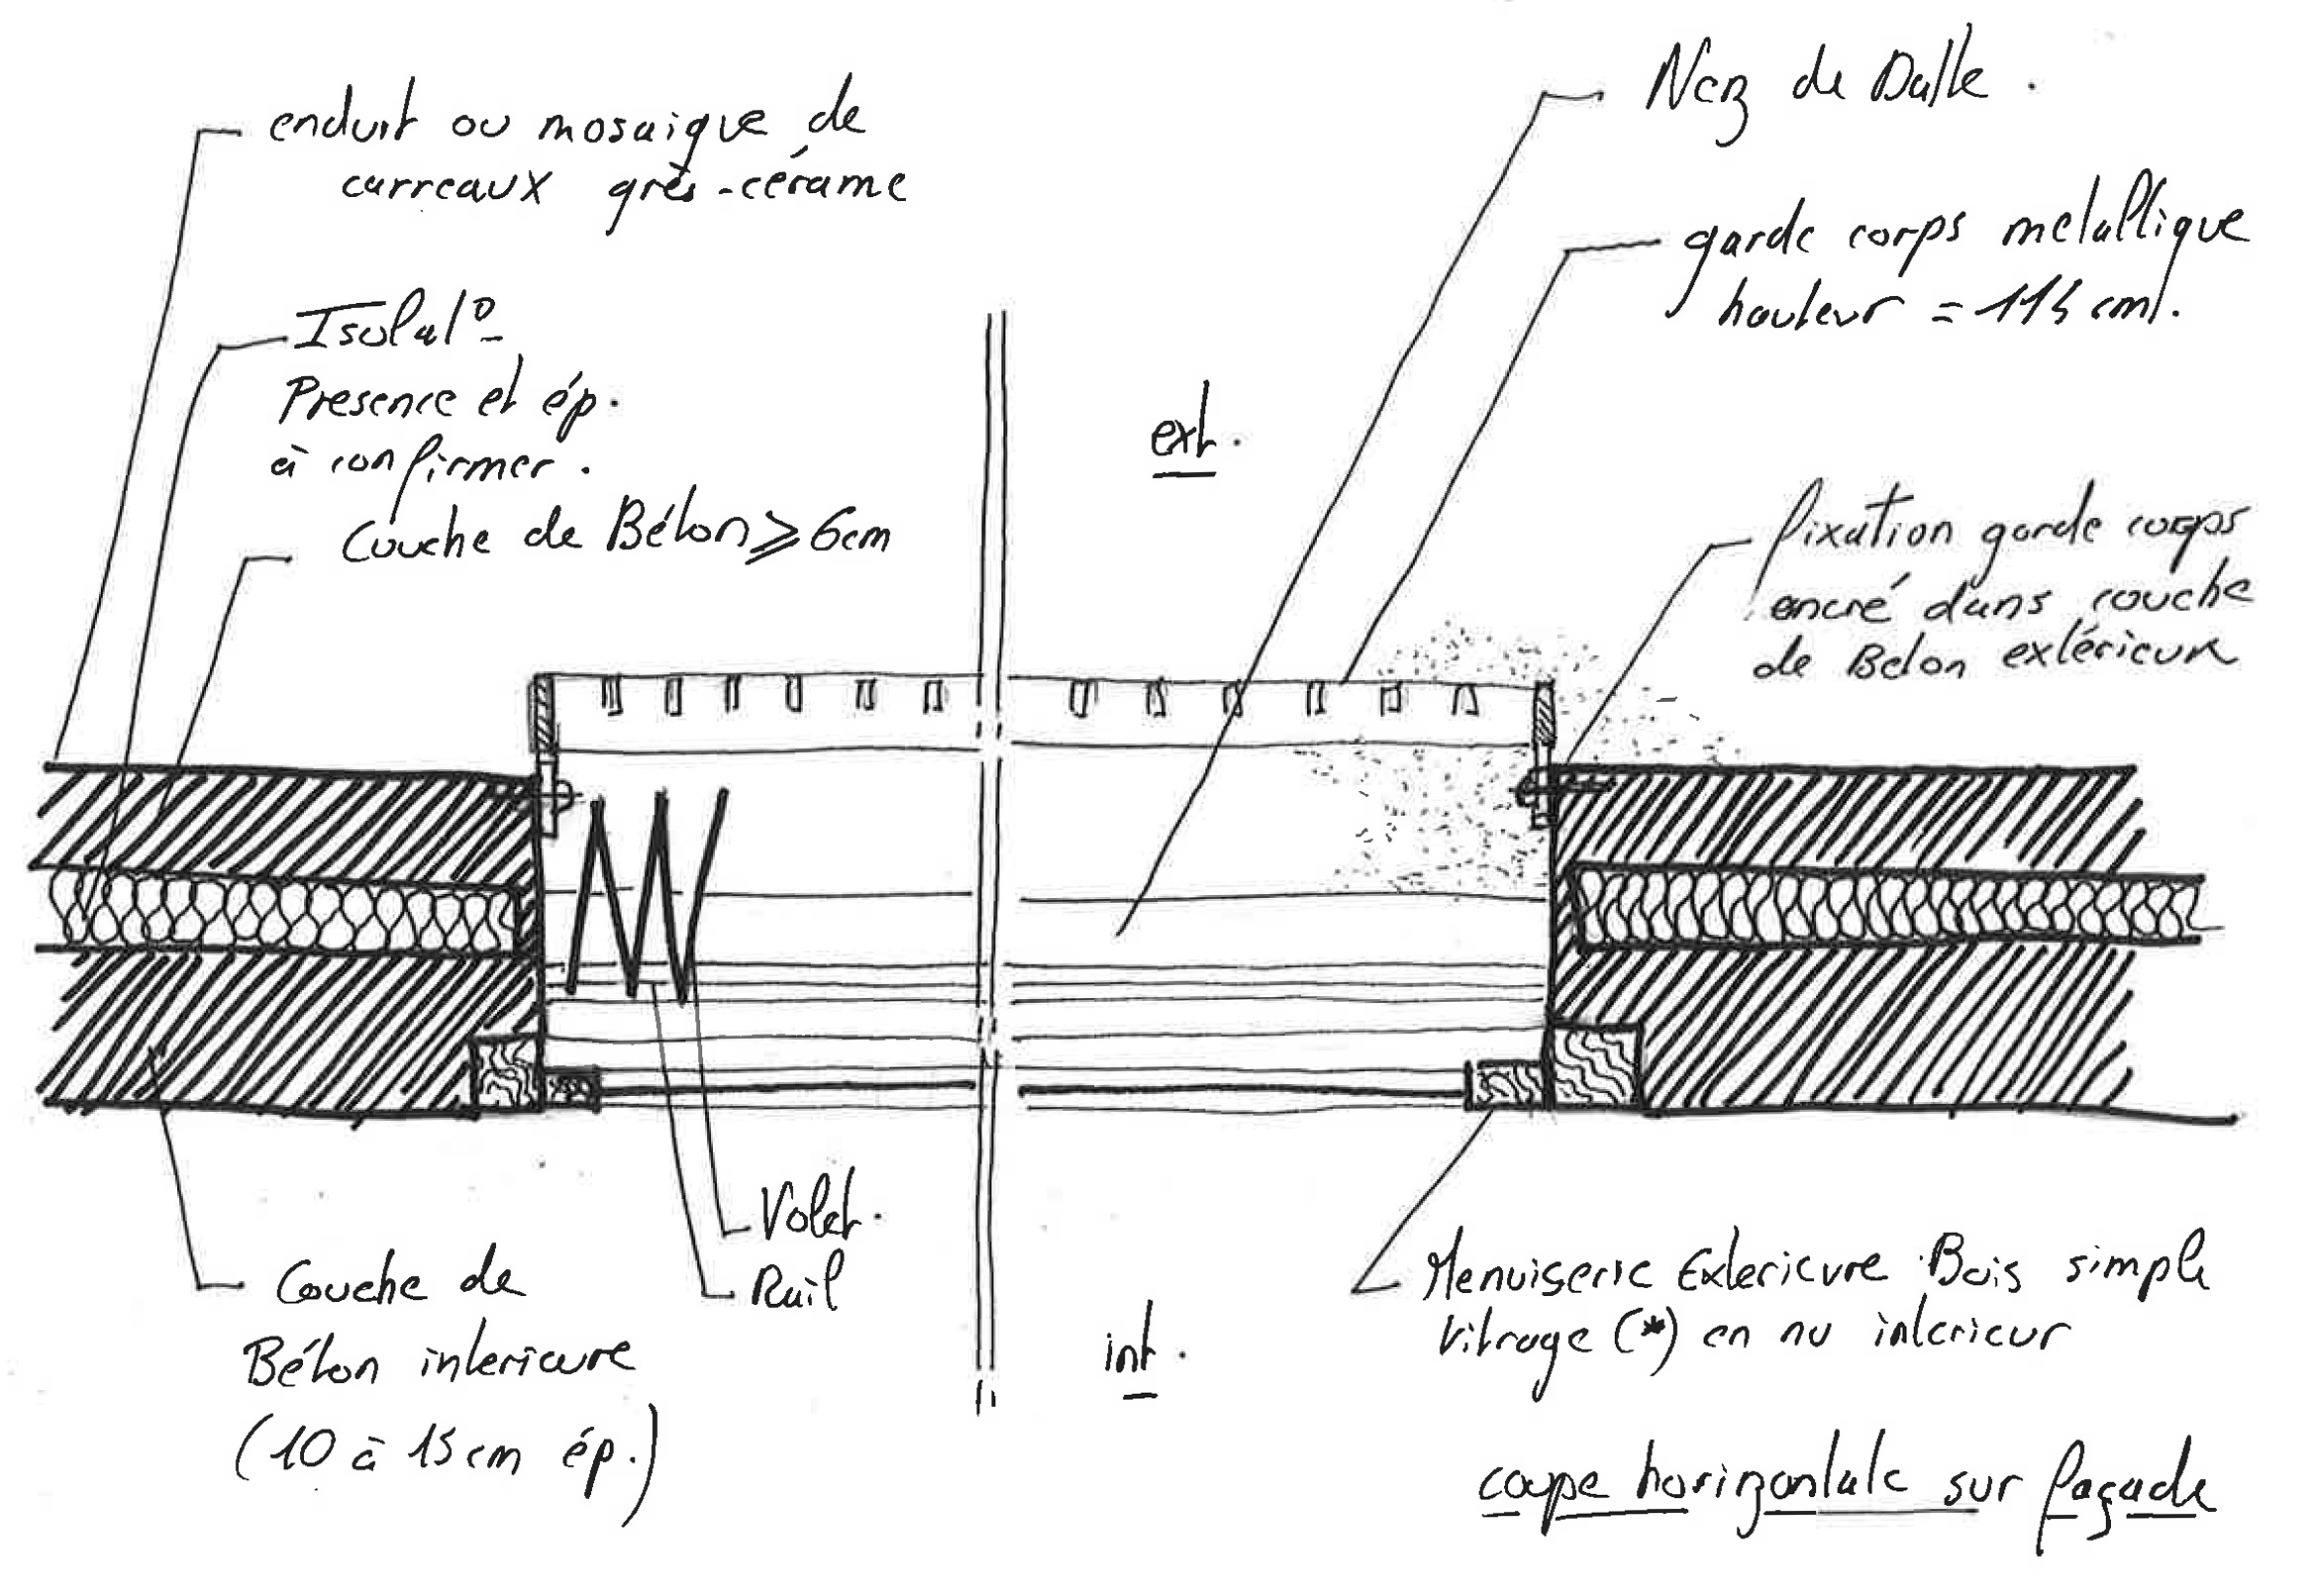 enduit ou mosaique de
carreaux grès-cérame
Isolat°
Presence et ép.
à confirmer.
Couche de Béton ⩾ 6cm
Nez de Dalle.
garde corps metallique
hauteur = 114 cm.
ext.
fixation garde corps
encré dans couche
de Beton extérieur
Volet.
Rail
Couche de
Béton interieure
(10 à 15cm ép.)
int.
Menuiserie Exterieure Bois simple
Vitrage (*) en nu interieur
coupe horizontale sur façade